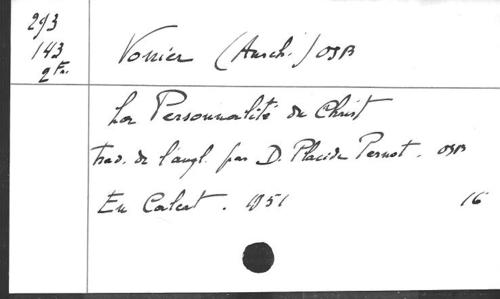 293
143
2 Fr.
Vonier (Ansch.) OSB
La Personnalité du Christ
trad. de l'angl. par D. Placide Pernot. OSB
En Calcat. 1951 16